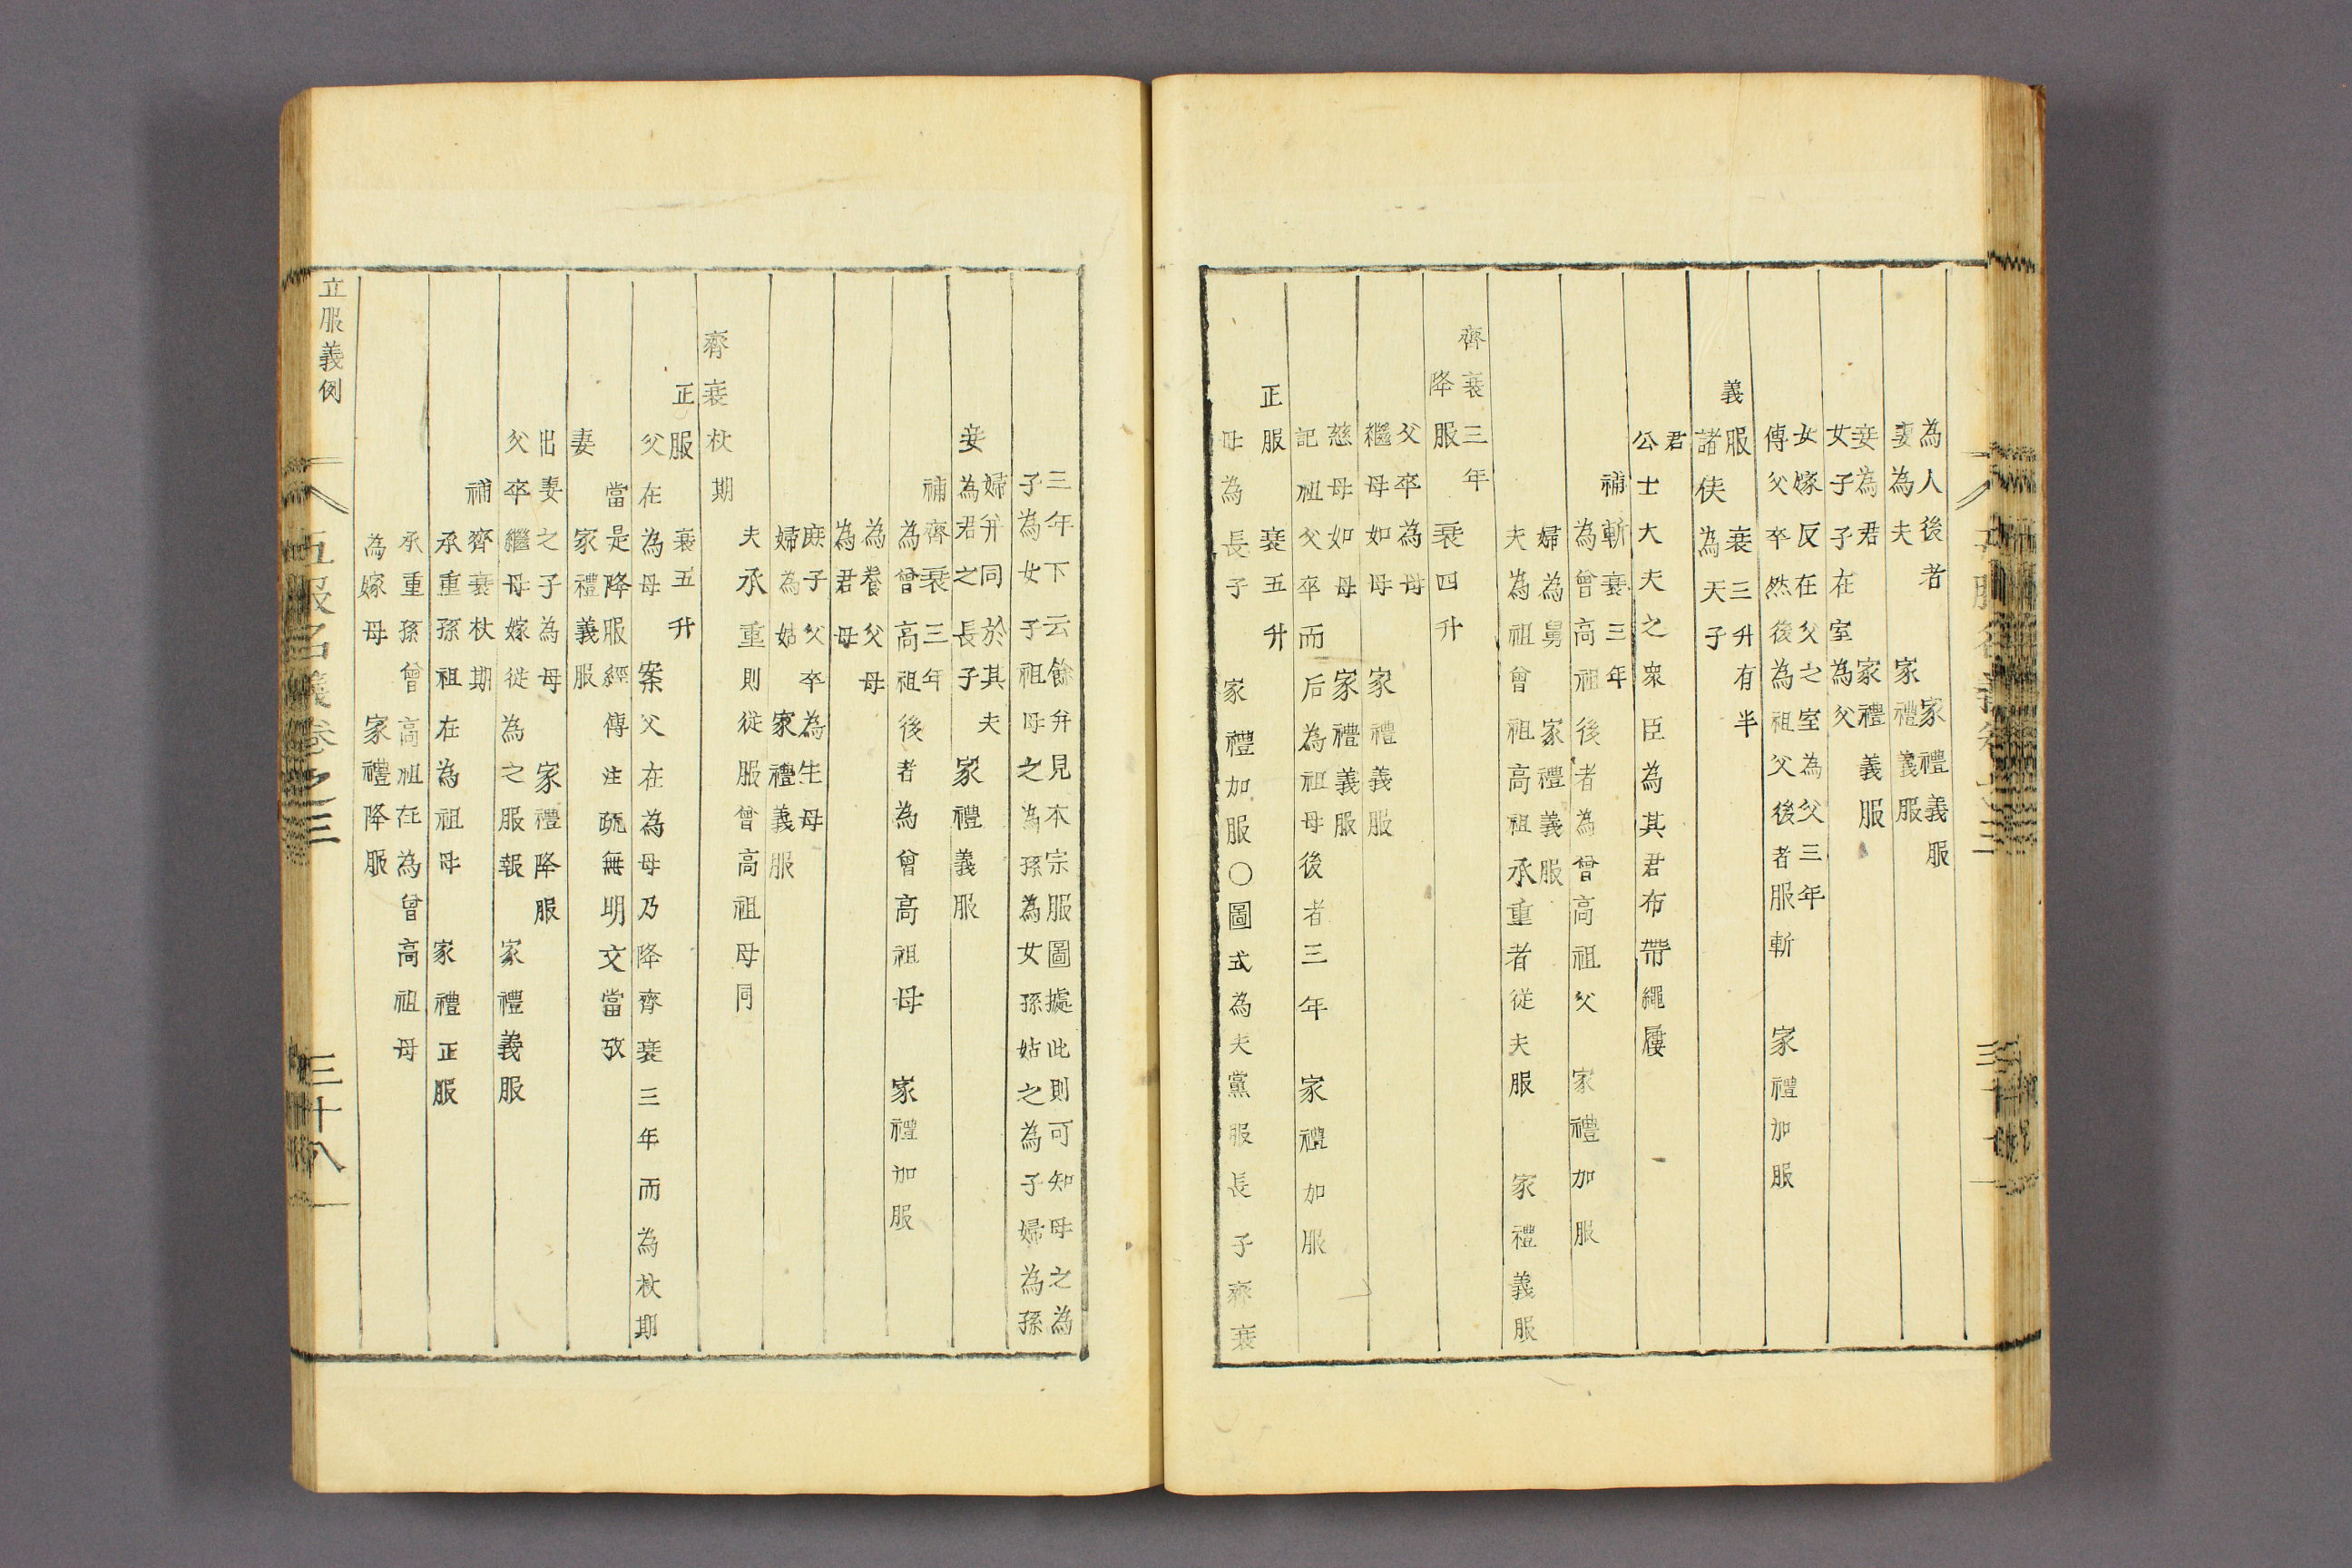 為人後者 家禮義服
妻為夫 家禮義服
妾為君 家禮義服
女子子在室為父
女嫁反在父之室為父三年
傳父卒然後為祖父後者服斬 家禮加服
義服 衰三升有半
諸侯為天子
君
公士大夫之衆臣為其君布帶繩屨
補斬衰三年
為曾高祖後者為曾高祖父 家禮加服
婦為舅 家禮義服
夫為祖曾祖高祖承重者從夫服 家禮義服
齊衰三年
降服 衰四升
父卒為母
繼母如母 家禮義服
慈母如母 家禮義服
記祖父卒而后為祖母後者三年 家禮加服
正服 衰五升
母為長子 家禮加服○圖式為夫黨服長子齊衰
三年下云餘幷見本宗服圖據此則可知母之為
子為女子子祖母之為孫為女孫姑之為子婦為孫
婦幷同於其夫
妾為君之長子 家禮義服
補齊衰三年
為曾高祖後者為曾高祖母 家禮加服
為養父母
為君母
庶子父卒為生母
婦為姑 家禮義服
夫承重則從服曾高祖母同
齊衰杖期
正服 衰五升
父在為母 案父在為母乃降齊衰三年而為杖期
當是降服經傳注疏無明文當攷
妻 家禮義服
出妻之子為母 家禮降服
父卒繼母嫁從為之服報 家禮義服
補齊衰杖期
承重孫祖在為祖母 家禮正服
承重孫曾高祖在為曾高祖母
為嫁母 家禮降服
立服義例
五服名義卷之三
三十八